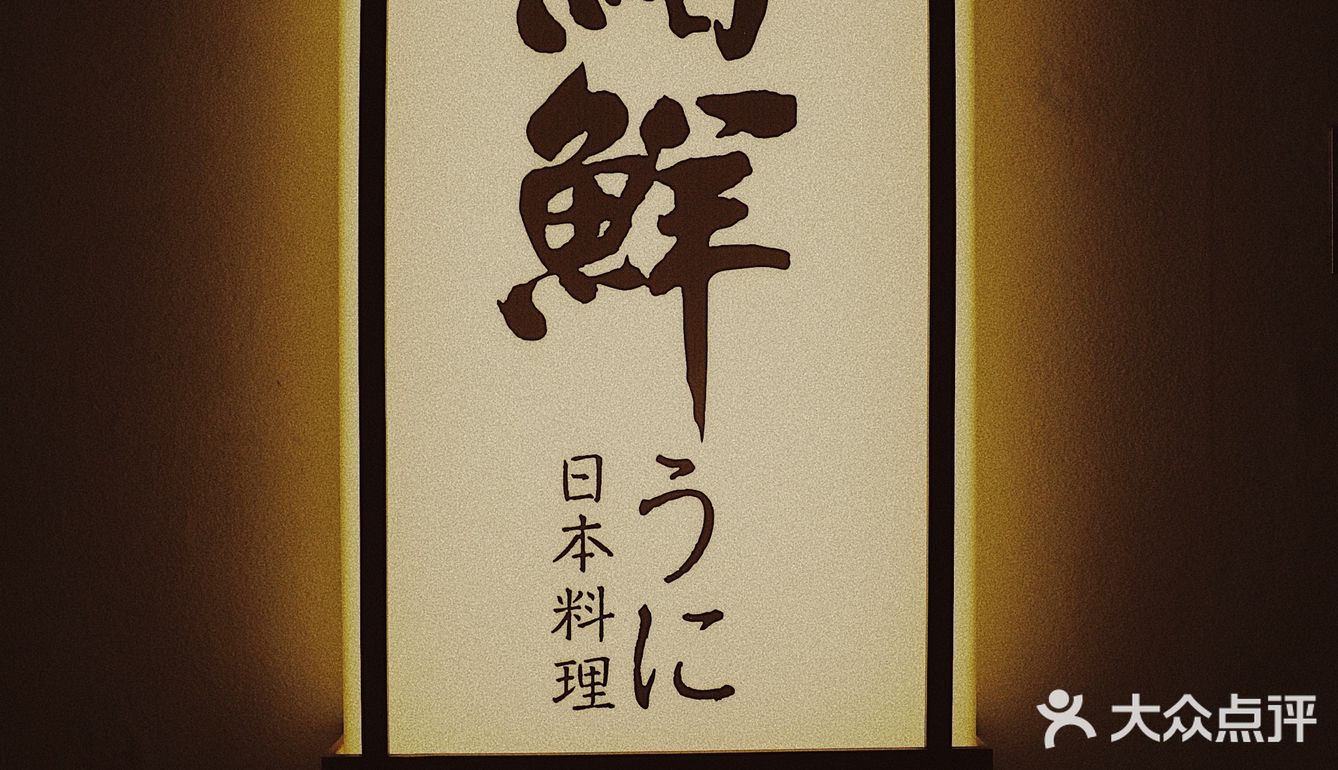 鮮
うに
日本料理
大众点评